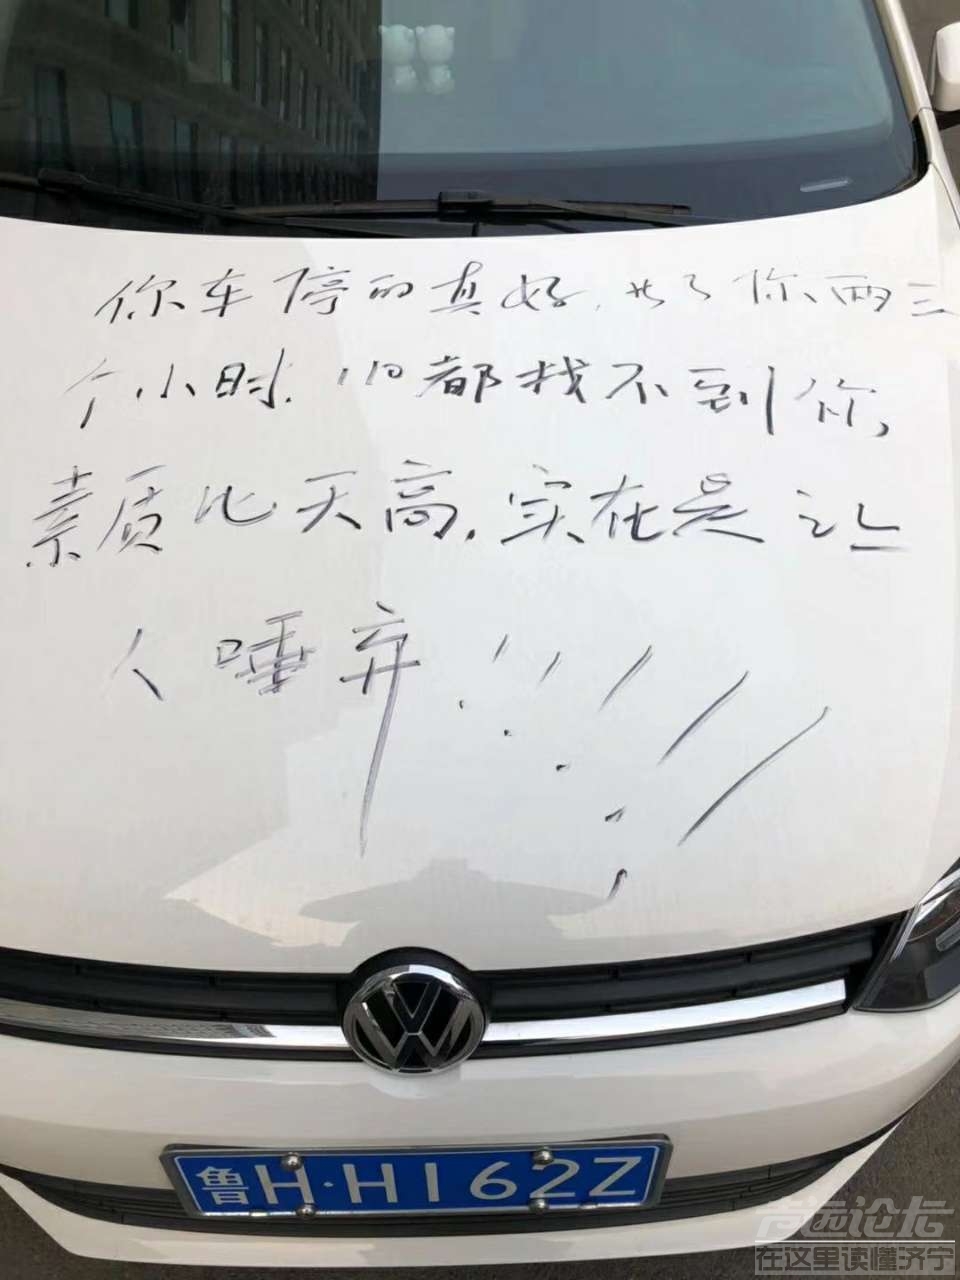 你车停的真好,了你两三
个小时.110都找不到你,
素质比天高,实在是让
人唾弃!!!!!
鲁H·H162Z
论坛
在这里读懂济宁